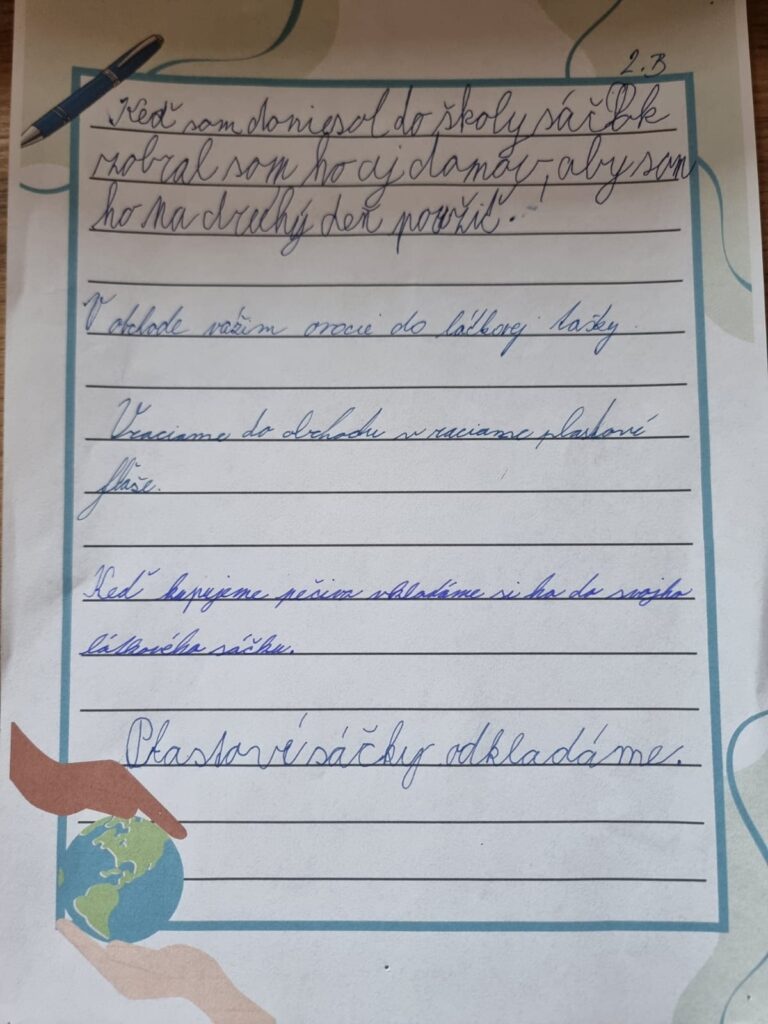 2.B
Keď som doniesol do školy sáčok
zobral som ho aj domov, aby som
ho na druhý deň použiť.
V obchode vážim ovocie do látkovej tašky.
Vraciame do obchodu vraciame plastové
fľaše.
Keď kupujeme pečivo vkladáme si ho do svojho
látkového sáčku.
Plastové sáčky odkladáme.